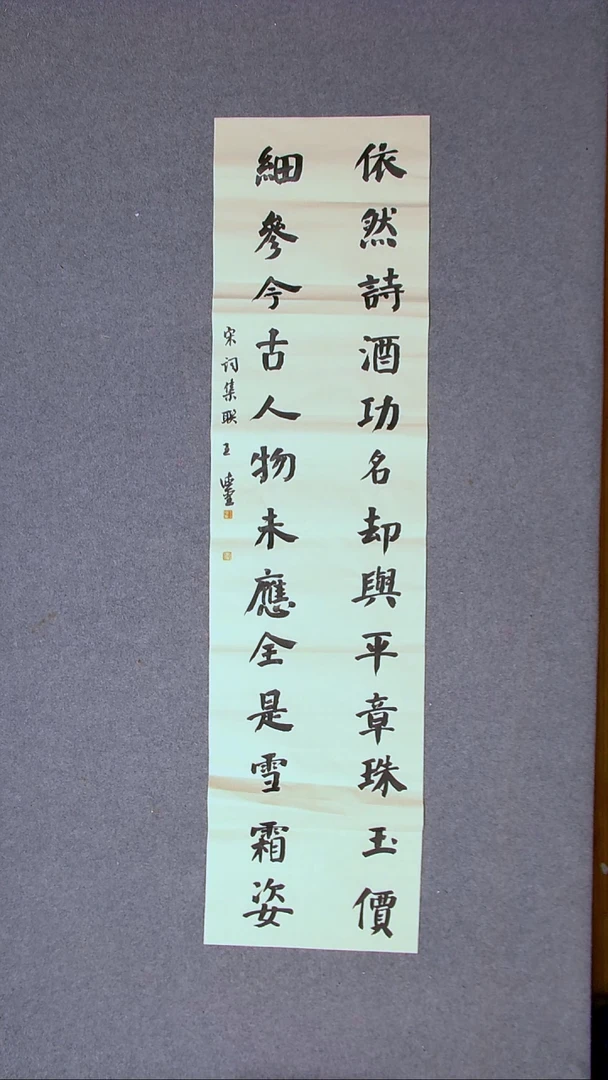 依然詩酒功名却與平章珠玉價
細參今古人物未應全是雪霜姿
宋词集联 王